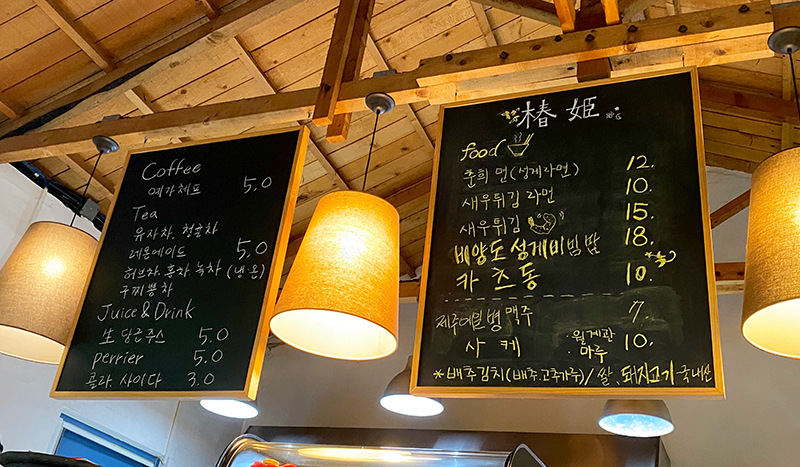 Coffee
예가체프 5.0
Tea
유자차, 청귤차
레몬에이드 5.0
허브차. 홍차 녹차 (냉, 온)
구찌뽕차
Juice & Drink
生 당근주스 5.0
perrier 5.0
콜라 사이다 3.0
椿姬
food
준희 면 (성게라면) 12.
새우튀김 라면 10.
새우튀김 15.
비양도 성게비빔밥 18.
카츠동 10.
제주에일 병맥주 7.
사케 월계관 · 마루 10.
*배추김치 (배추, 고추가루) / 쌀, 돼지고기 국내산